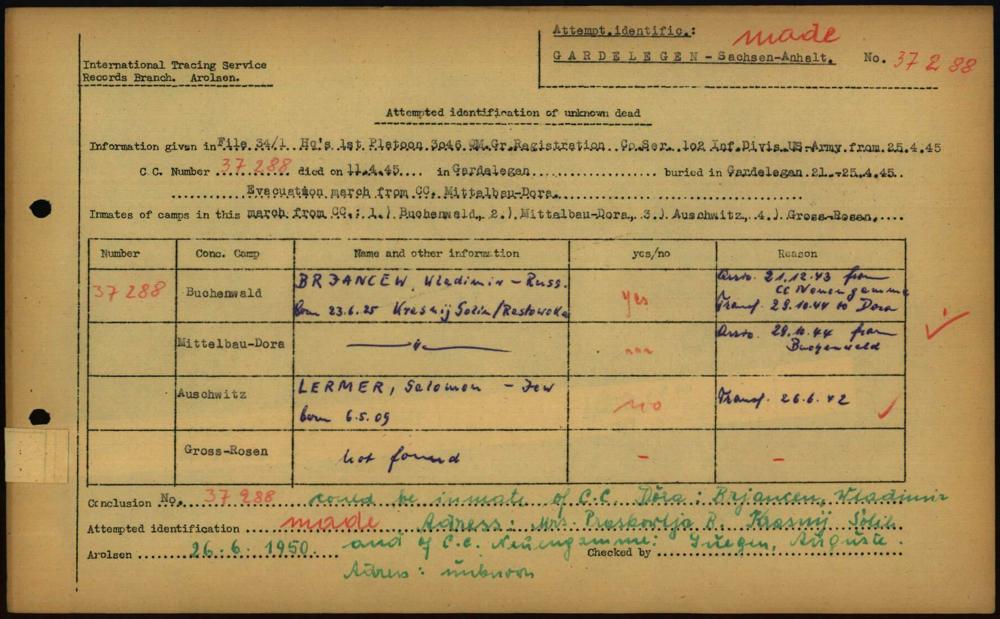 Attempt.identific.: made
GARDELEGEN - Sachsen-Anhalt. No. 37 288
International Tracing Service
Records Branch. Arolsen.
Attempted identification of unknown dead
Information given in File 34/1 Hq's 1st Platoon 3046 QM.Gr.Registration Co.Ser. 102 Inf.Divis.US-Army.from 25.4.45
C.C. Number 37 288 died on 11.4.45. in Gardelegen buried in Gardelegen 21.-25.4.45.
Evacuation march from CC. Mittelbau-Dora.
Inmates of camps in this march from CC.: 1.) Buchenwald, 2.) Mittelbau-Dora, 3.) Auschwitz, 4.) Gross-Rosen.
Number Conc. Camp Name and other information yes/no Reason
37 288 Buchenwald BRJANCEW, Wladimir - Russ. yes Arriv. 21.12.43 from
CC Neuengamme
born 23.6.25 Transf. 29.10.44 to Dora
Mittelbau-Dora — " — Arriv. 29.10.44 from
Buchenwald
Auschwitz LERMER, Salomon - Jew no Transf. 26.6.42
born 6.5.09
Gross-Rosen not found - -
Conclusion No. 37 288 could be inmate of C.C. Dora: Brjancew, Wladimir
Attempted identification made Adress: Mrs. B. Krasnij
Arolsen 26.6.1950. and of C.C. Neuengamme: Auguste.
Checked by
Adress: unknown